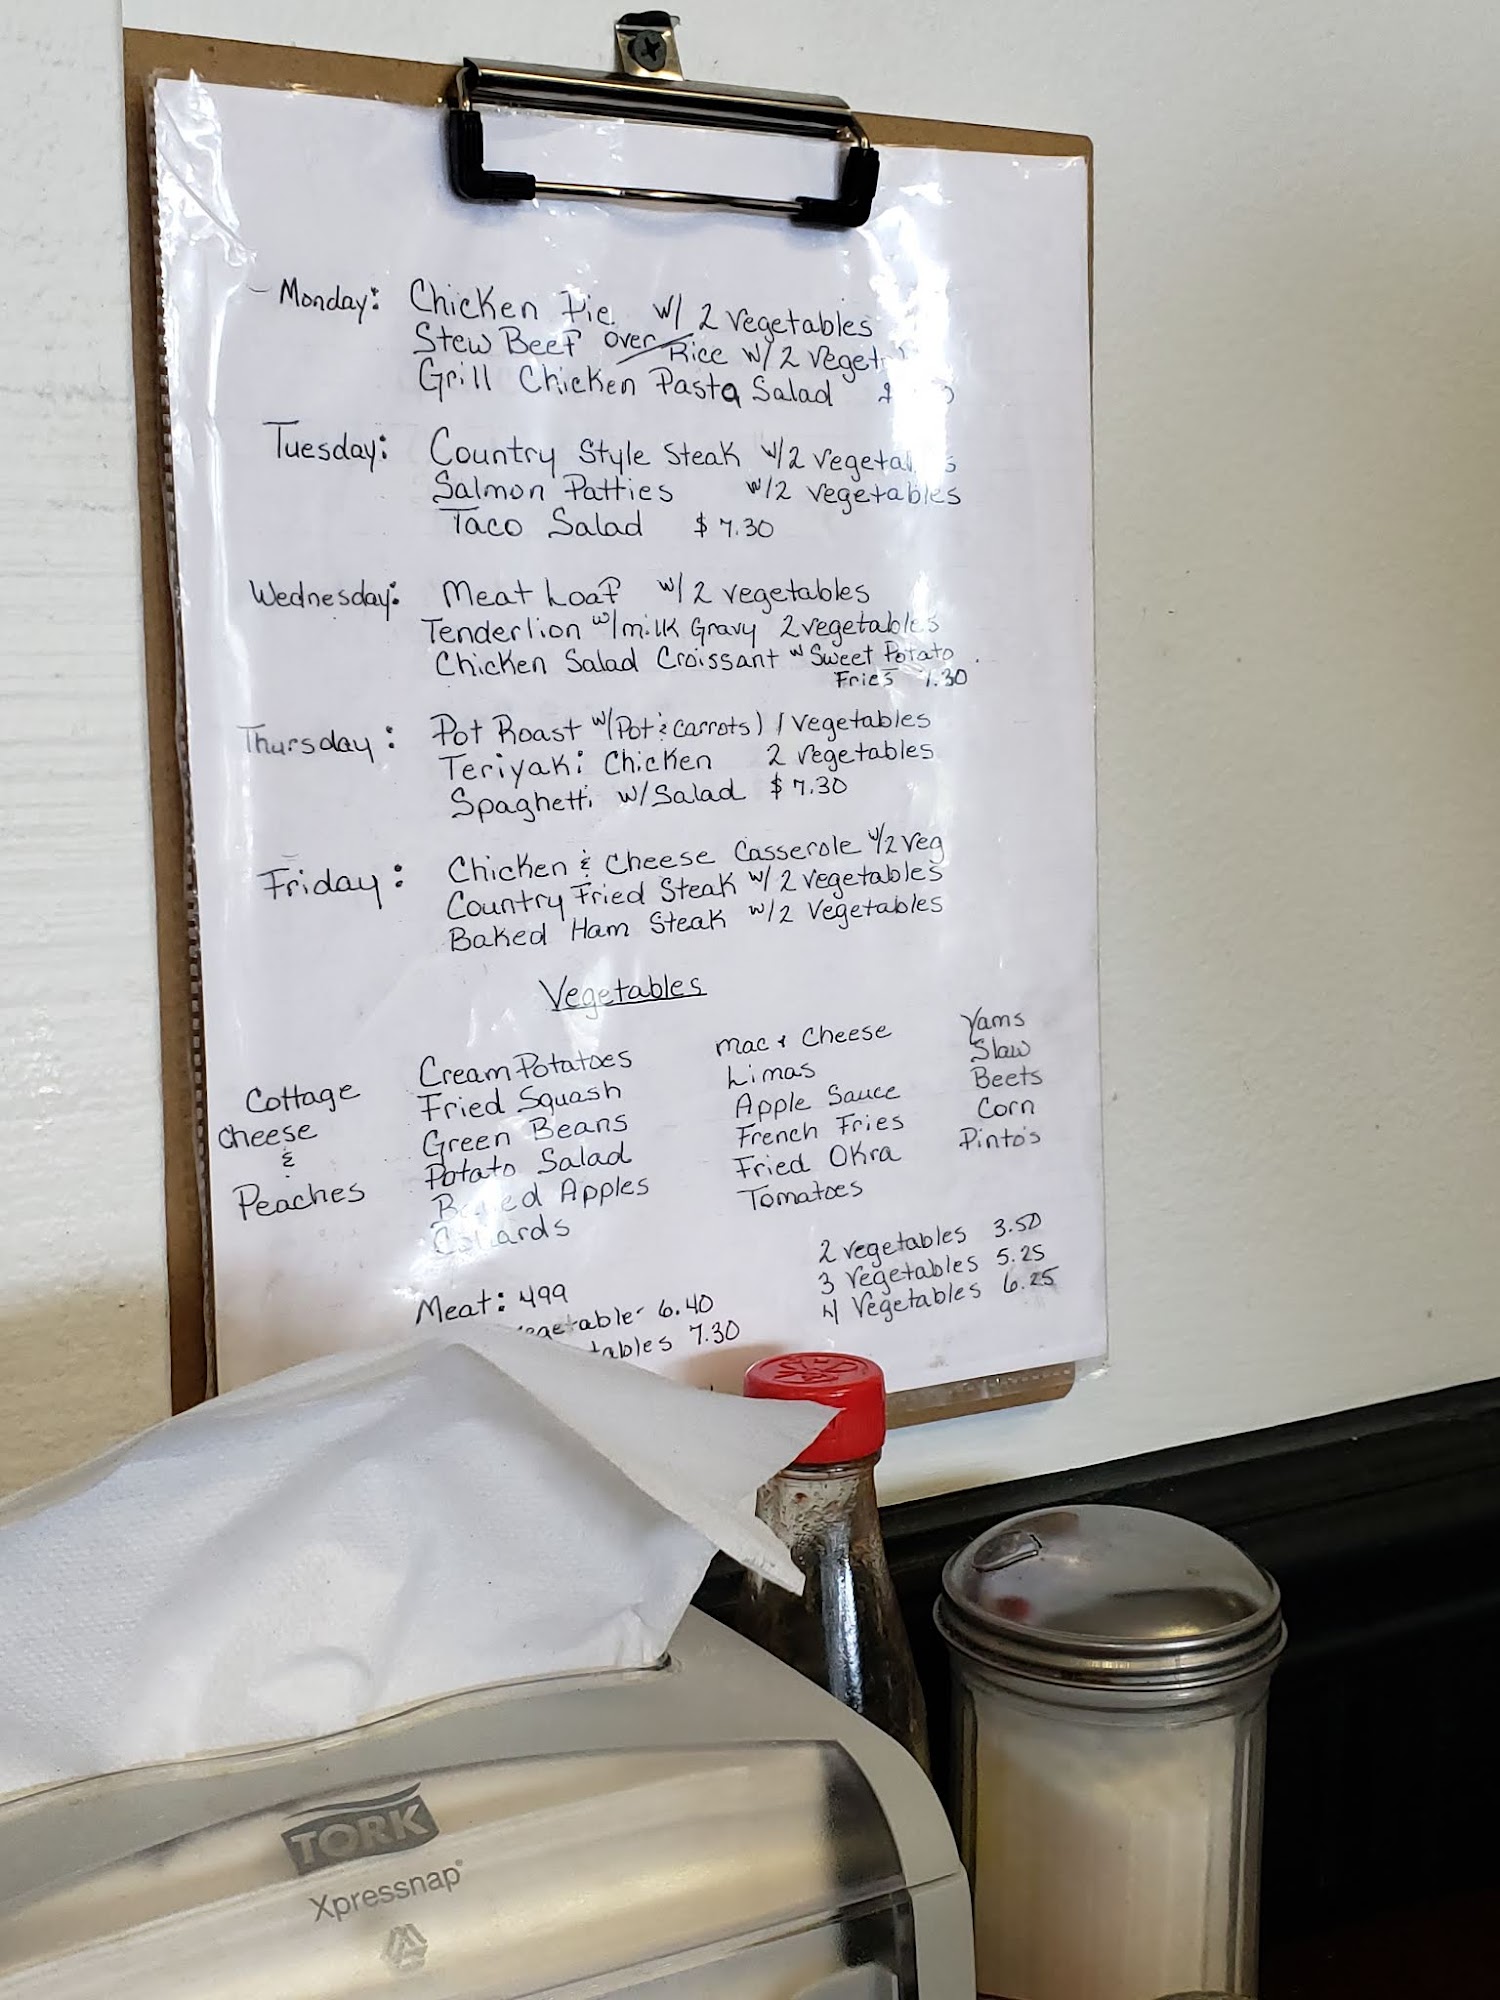 Monday: Chicken Pie w/ 2 vegetables
Stew Beef over Rice w/ 2 Veget
Grill Chicken Pasta Salad
Tuesday: Country Style Steak w/2 vegetables
Salmon Patties w/2 vegetables
Taco Salad $7.30
Wednesday: Meat Loaf w/2 vegetables
Tenderlion w/milk Gravy 2 vegetables
Chicken Salad Croissant w Sweet Potato
Fries 7.30
Thursday: Pot Roast w/(Pot & carrots) 1 vegetables
Teriyaki Chicken 2 vegetables
Spaghetti w/Salad $7.30
Friday: Chicken & Cheese Casserole w/2 veg
Country Fried Steak w/2 vegetables
Baked Ham Steak w/2 Vegetables
Vegetables
Cottage
Cheese
&
Peaches
Cream Potatoes
Fried Squash
Green Beans
Potato Salad
Baked Apples
Collards
Mac + Cheese
Limas
Apple Sauce
French Fries
Fried Okra
Tomatoes
Yams
Slaw
Beets
Corn
Pinto's
2 vegetables 3.50
3 vegetables 5.25
4 Vegetables 6.25
Meat: 499
6.40
7.30
TORK
Xpressnap®